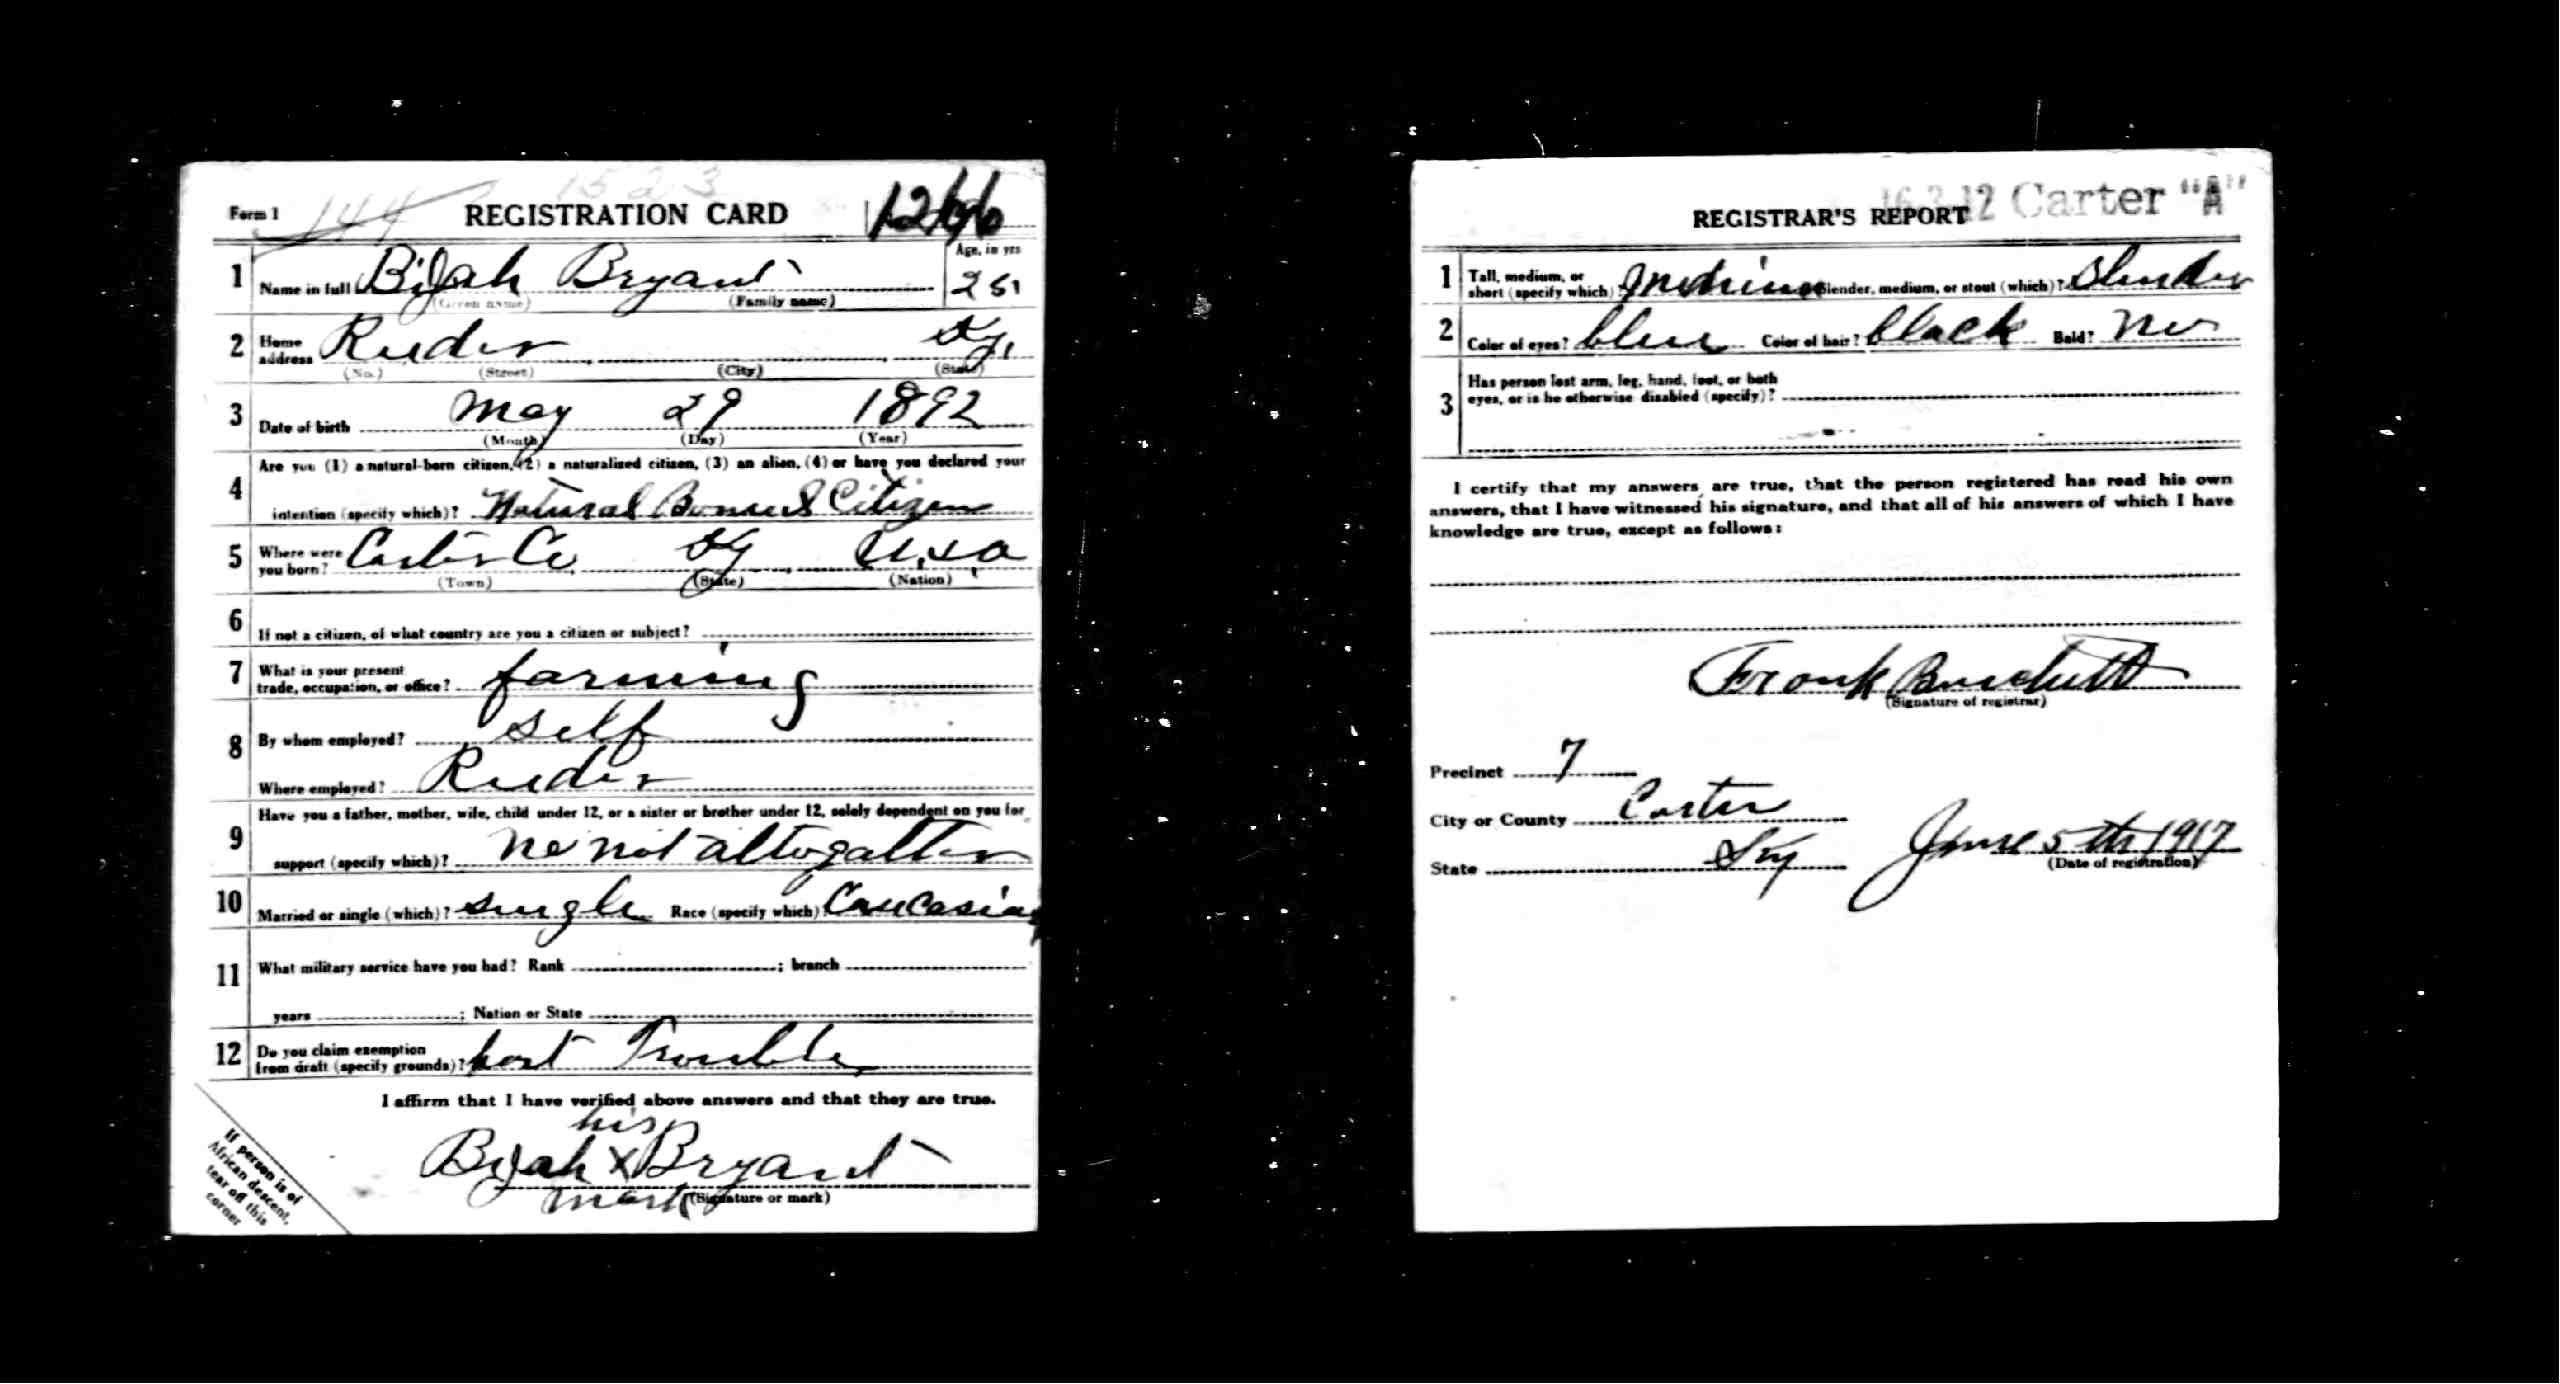 Form 1 144 1523 REGISTRATION CARD 1266
Age, in yrs
1 Name in full Bijah Bryant 25
(Given name) (Family name)
2 Home address Ky.
(No.) (Street) (City) (State)
3 Date of birth May 29 1892
(Month) (Day) (Year)
Are you (1) a natural-born citizen, (2) a naturalized citizen, (3) an alien, (4) or have you declared your
4 intention (specify which)? Natural Citizen
5 Where were you born? Carter Co Ky U.S.A
(Town) (State) (Nation)
6 If not a citizen, of what country are you a citizen or subject?
7 What is your present
trade, occupation, or office? farming
8 By whom employed? self
Where employed?
Have you a father, mother, wife, child under 12, or a sister or brother under 12, solely dependent on you for
9 support (specify which)? no not altogather
10 Married or single (which)? single Race (specify which)? Caucasian
11 What military service have you had? Rank ; branch
years ; Nation or State
12 Do you claim exemption
from draft (specify grounds)? hart Trouble
I affirm that I have verified above answers and that they are true.
his
Bijah X Bryant
mark (Signature or mark)
If person is of
African descent,
tear off this
corner
16-3-12 Carter "A"
REGISTRAR'S REPORT
1 Tall, medium, or
short (specify which)? medium Slender, medium, or stout (which)? Slender
2 Color of eyes? blue Color of hair? black Bald? No
Has person lost arm, leg, hand, foot, or both
3 eyes, or is he otherwise disabled (specify)?
I certify that my answers are true, that the person registered has read his own
answers, that I have witnessed his signature, and that all of his answers of which I have
knowledge are true, except as follows:
Frank Burchett
(Signature of registrar)
Precinct 7
City or County Carter
State Ky June 5th 1917
(Date of registration)